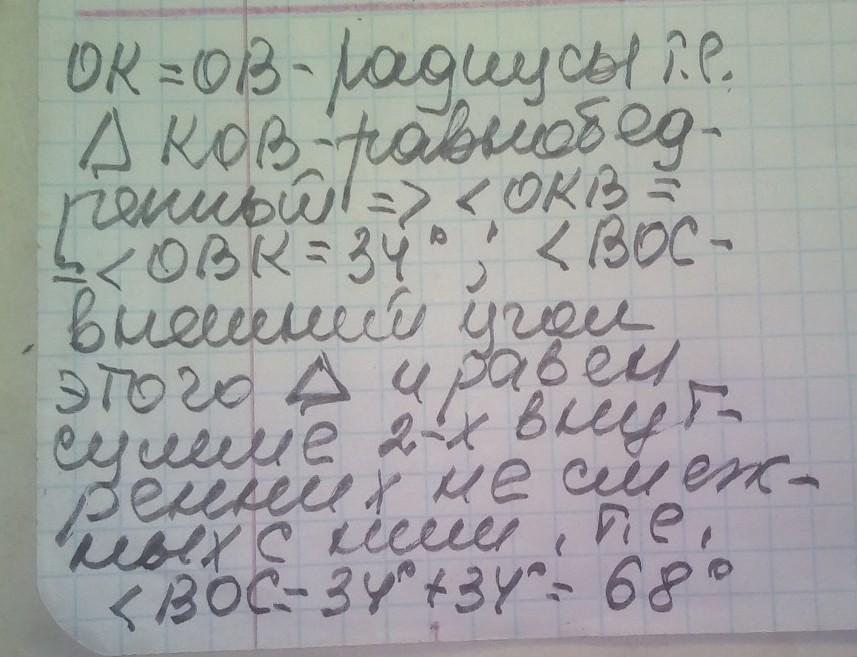 OK = OB - радиусы т.е.
Δ KOB - равнобед-
ренный => < OKB =
= < OBK = 34° ; < BOC -
внешний угол
этого Δ и равен
сумме 2-х внут-
ренних не смеж-
ных с ним, т.е.
< BOC = 34° + 34° = 68°